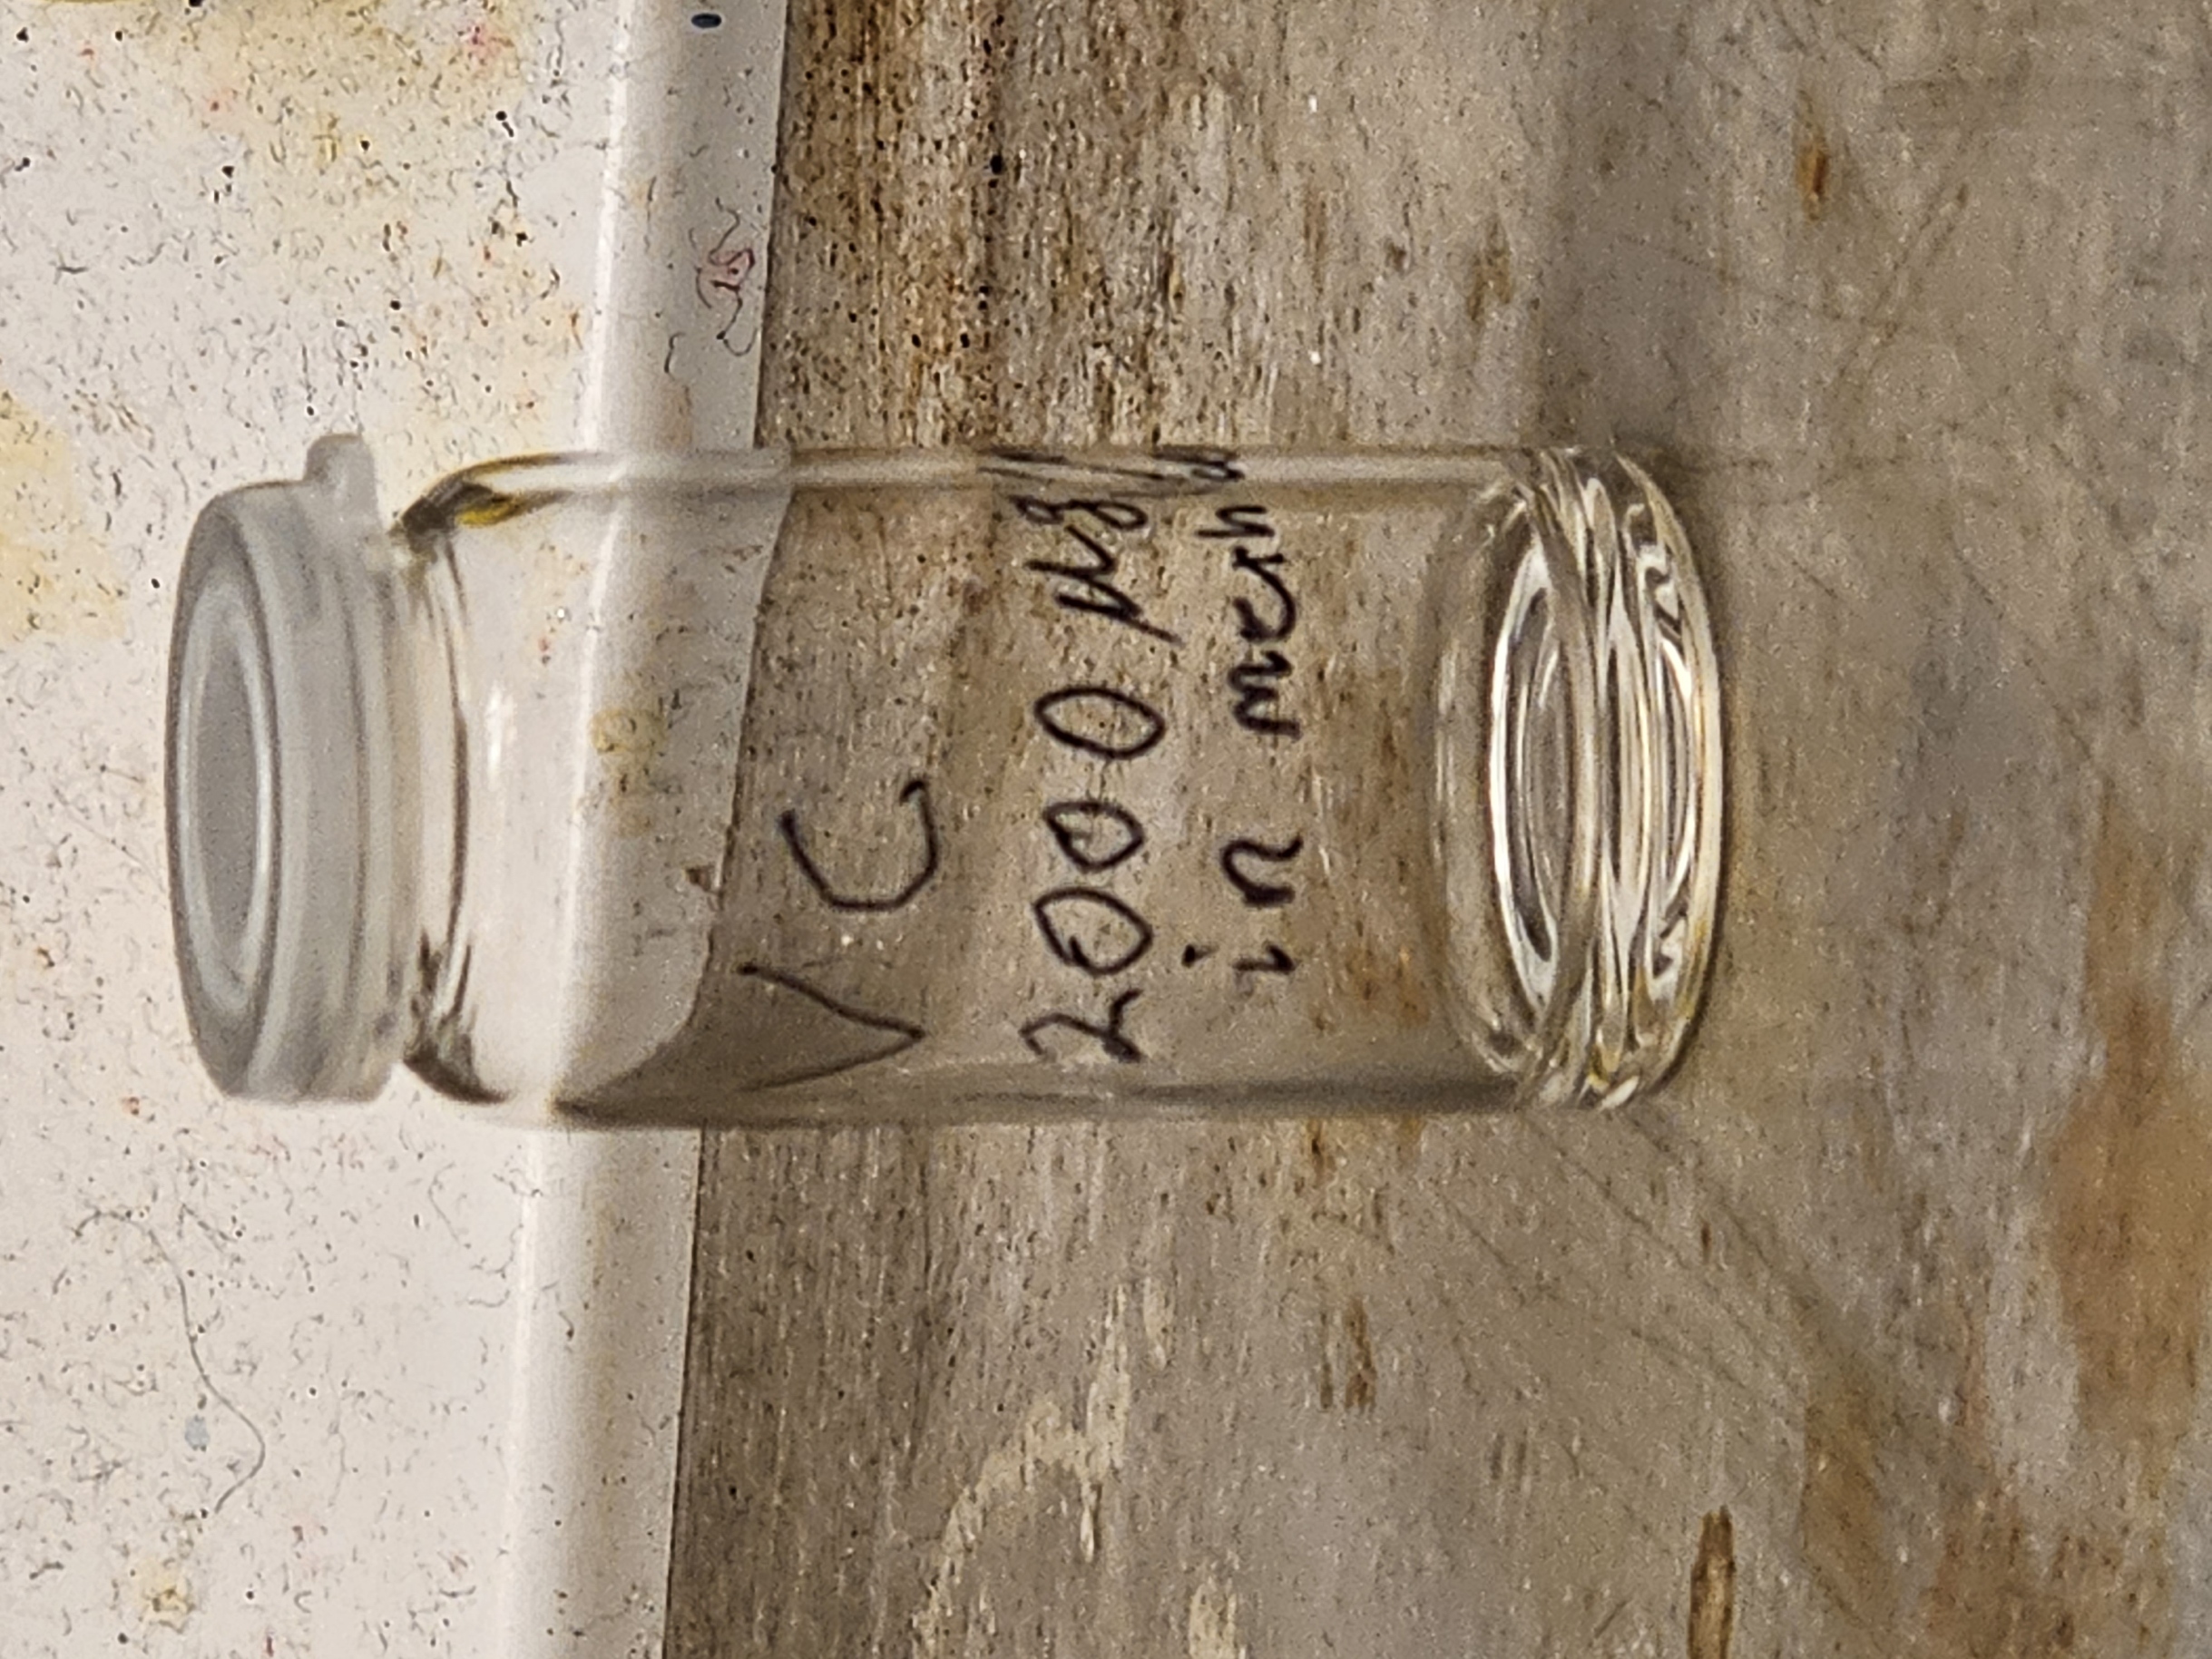 VC
2000 µg/
in metha